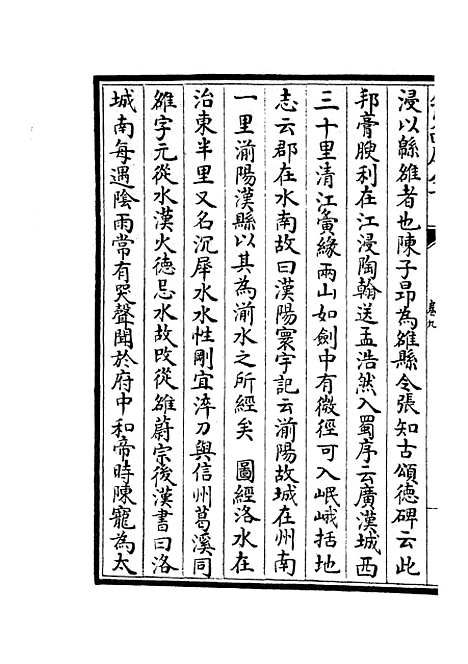 浸以緜雒者也陳子昂為雒縣令張知古頌德碑云此
邦膏腴利在江浸陶翰送孟浩然入蜀序云廣漢城西
三十里清江夤緣兩山如劍中有微徑可入岷峨括地
志云郡在水南故曰漢陽寰宇記云湔陽故城在州南
一里湔陽漢縣以其為湔水之所經矣　圖經洛水在
治東半里又名沉犀水水性剛宜淬刀與信州葛溪同
雒字元從水漢火德忌水故改從雒蔚宗後漢書曰洛
城南每遇陰雨常有哭聲聞於府中和帝時陳寵為太
卷九